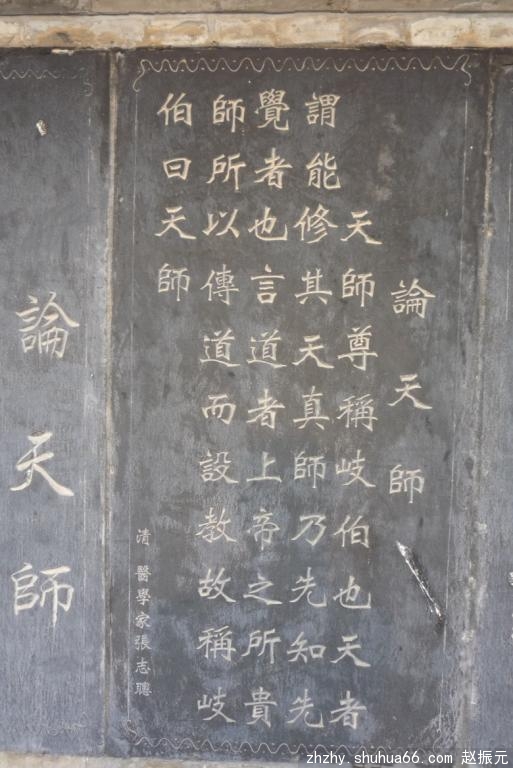 論天師
天師尊稱岐伯也天者
謂能修其天真師乃先知先
覺者也言道者上帝之所貴
師所以傳道而設教故稱岐
伯曰天師
清 醫學家張志聰
論天師
zhzhy.shuhua66.com 赵振元